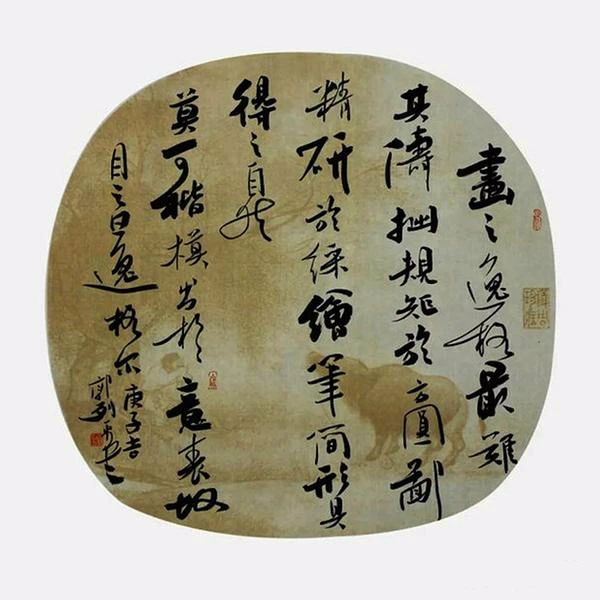 畫之逸格最難
其儔拙規矩於方圓鄙
精研於綵繪筆简形具
得之自然
莫可楷模出於意表故
目之曰逸格尔
庚子吉
郭列